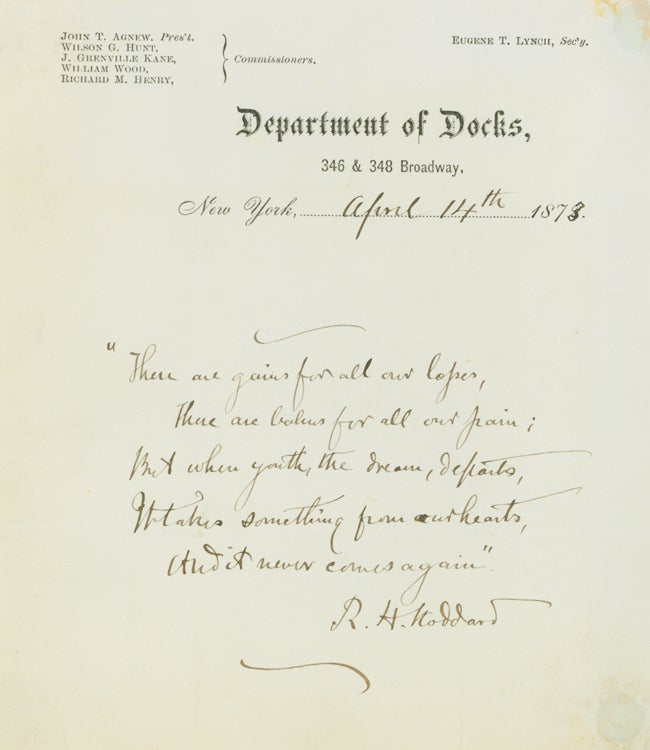 JOHN T. AGNEW, Pres't.
WILSON G. HUNT,
J. GRENVILLE KANE,
WILLIAM WOOD,
RICHARD M. HENRY,
Commissioners.
EUGENE T. LYNCH, Sec'y.
Department of Docks,
346 & 348 Broadway,
New York, April 14th 1873.
"There are gains for all our losses,
There are balms for all our pain;
But when youth, the dream, departs,
It takes something from our hearts,
And it never comes again".
R. H. Stoddard